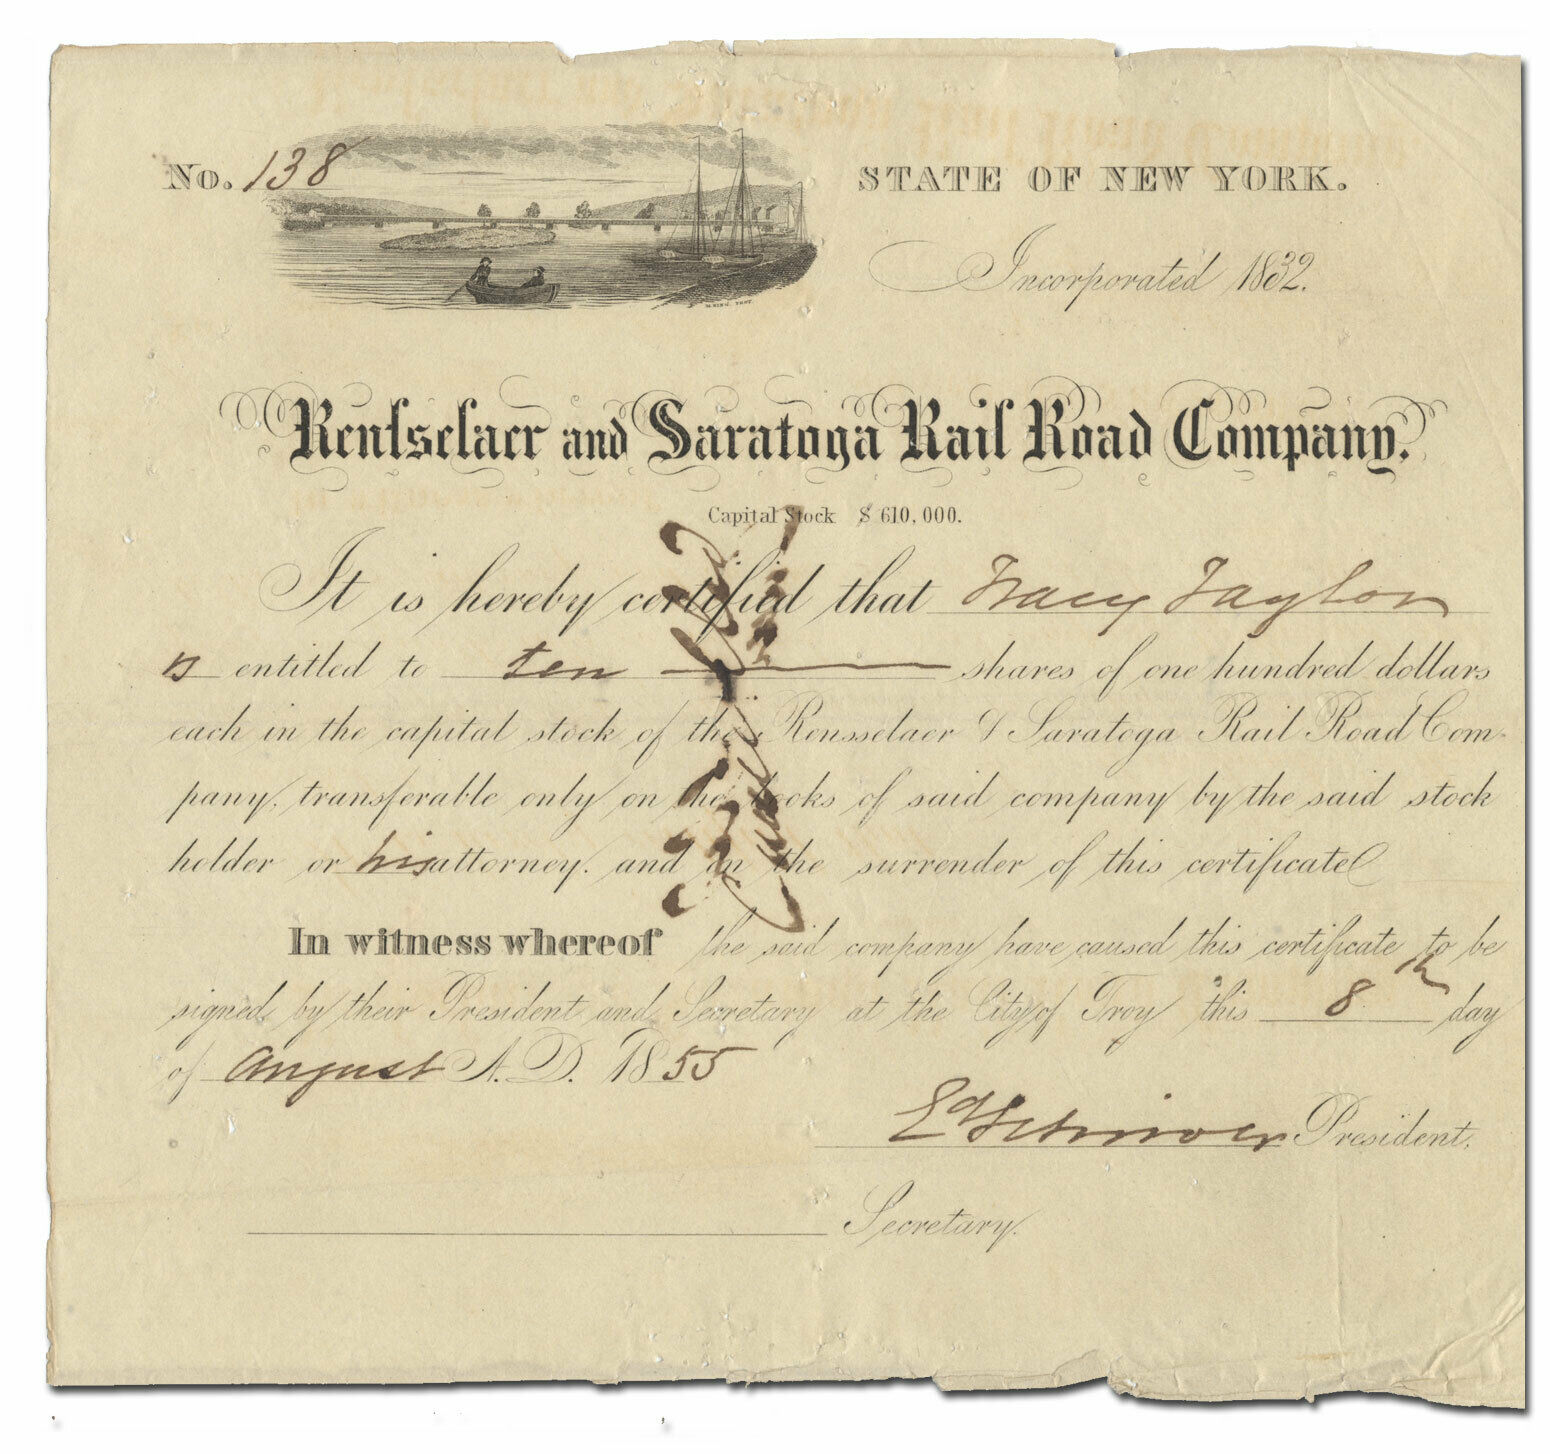 No. 138
STATE OF NEW YORK.
Incorporated 1832.
Rensselaer and Saratoga Rail Road Company.
Capital Stock $ 610,000.
It is hereby certified that Tracy Taylor
is entitled to ten shares of one hundred dollars
each in the capital stock of the Rensselaer & Saratoga Rail Road Com-
pany, transferable only on the books of said company by the said stock
holder or his attorney. and on the surrender of this certificate
In witness whereof the said company have caused this certificate to be
signed by their President and Secretary at the City of Troy this 8th day
of August A.D. 1855
President.
Secretary.